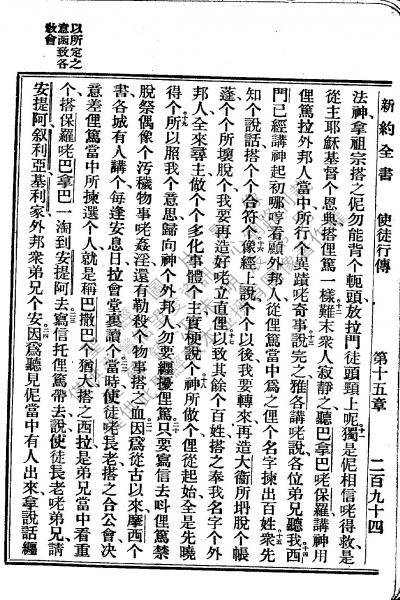 新約全書 使徒行傳 第十五章 二百九十四
以所定之
意函致各
教會
法神、拿祖宗搭之伲勿能背个軛頭放拉門徒頭頸上呢、獨是伲相信咾得救、是
從主耶穌基督个恩典、搭俚篤一樣、難末衆人寂靜之、聽巴拿巴咾保羅講神用
俚篤拉外邦人當中所行个異蹟咾奇事、說完之、雅各講咾說、各位弟兄聽我、西
門已經講神起初哪哼看顧外邦人、從俚篤當中爲之俚个名字揀出百姓、衆先
知个說話搭个个合符个、像經上說个、个个以後我要轉來、再造大衞所坍脫个帳
蓬、个个所壞脫个我要再造好咾立直俚、以致其餘个百姓、搭之奉我名字个外
邦人、全來尋主、做个个多化事體个主實梗說、神所做个、俚從起始全是先曉
得个、所以照我个意思、歸向神个外邦人、勿要纏擾俚篤、只要寫信去呌俚篤禁
脫祭偶像个汚穢物事咾姦淫、還有勒殺个物事、搭之血、因爲從古以來、摩西个
書各城有人講个、每逢安息日拉會堂裏讀个、當時使徒咾長老、搭之合公會決
意、差俚篤當中所揀選个人、就是稱巴撒巴个猶大、搭之西拉、是弟兄當中看重
个、搭保羅咾巴拿巴一淘到安提阿去、寫信托俚篤帶去說、使徒長老咾弟兄、請
安提阿、叙利亞、基利家、外邦衆弟兄个安、因爲聽見伲當中有人出來、拿說話纏